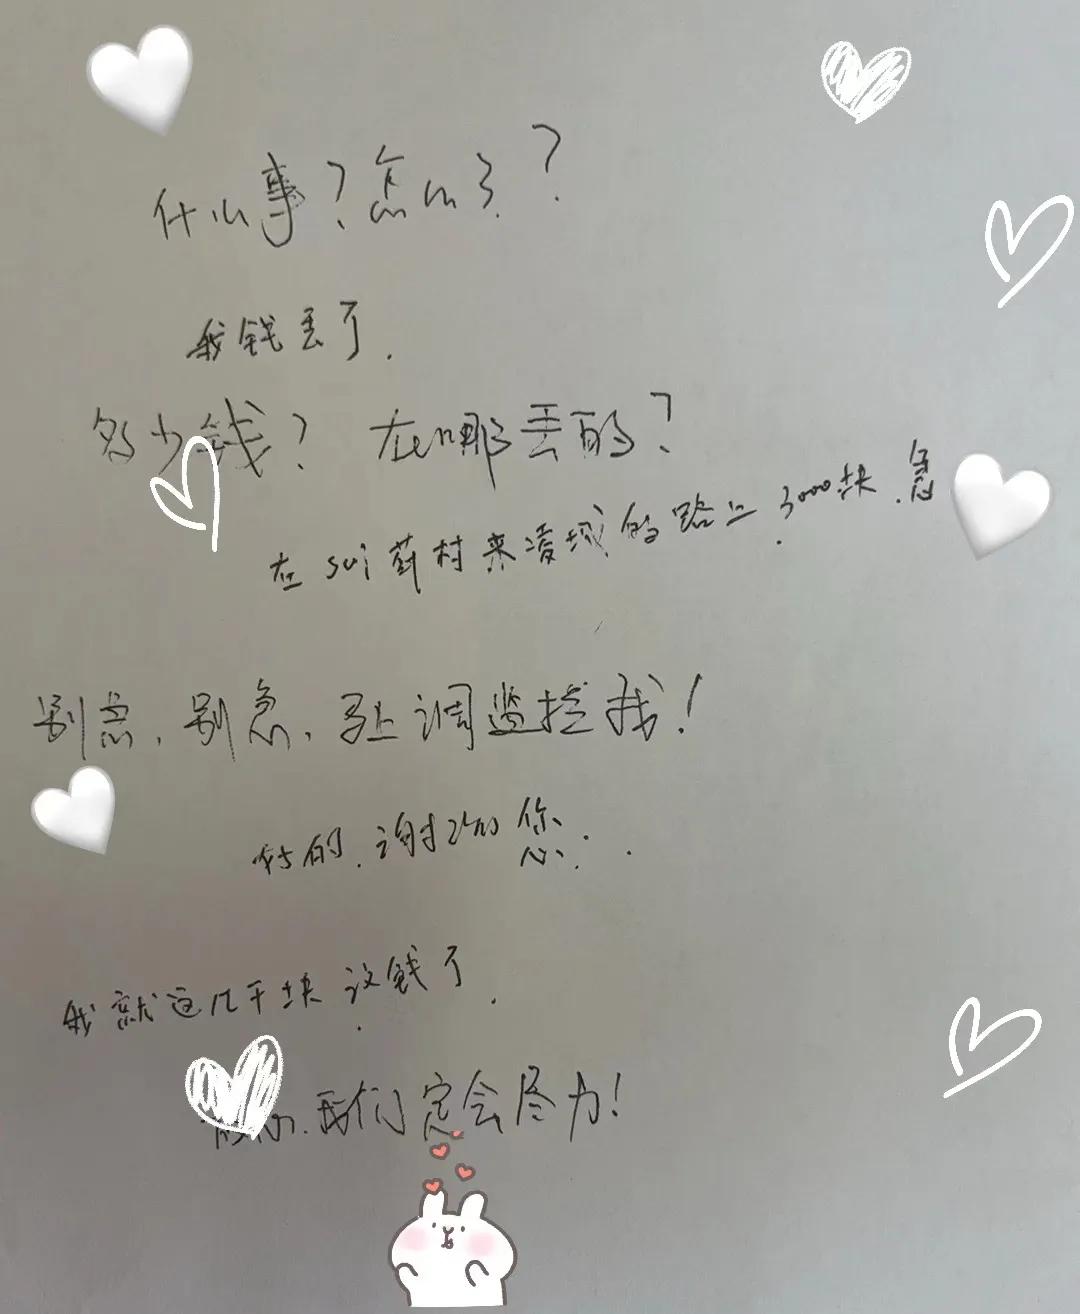 什么事？怎么了？
我钱丢了.
多少钱？在哪丢的？
在sui药村来凌城的路上.3000块.急
别急,别急,马上调监控找！
好的.谢谢您.
我就这几千块这钱了.
我们一定会尽力！